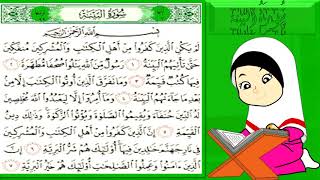 سُورَةُ البَيِّنَةِ
بِسْمِ ٱللَّهِ ٱلرَّحْمَٰنِ ٱلرَّحِيمِ
لَمْ يَكُنِ ٱلَّذِينَ كَفَرُوا۟ مِنْ أَهْلِ ٱلْكِتَٰبِ وَٱلْمُشْرِكِينَ مُنفَكِّينَ
حَتَّىٰ تَأْتِيَهُمُ ٱلْبَيِّنَةُ ١ رَسُولٌ مِّنَ ٱللَّهِ يَتْلُوا۟ صُحُفًا مُّطَهَّرَةً ٢
فِيهَا كُتُبٌ قَيِّمَةٌ ٣ وَمَا تَفَرَّقَ ٱلَّذِينَ أُوتُوا۟ ٱلْكِتَٰبَ إِلَّا مِنۢ
بَعْدِ مَا جَآءَتْهُمُ ٱلْبَيِّنَةُ ٤ وَمَآ أُمِرُوٓا۟ إِلَّا لِيَعْبُدُوا۟ ٱللَّهَ مُخْلِصِينَ
لَهُ ٱلدِّينَ حُنَفَآءَ وَيُقِيمُوا۟ ٱلصَّلَوٰةَ وَيُؤْتُوا۟ ٱلزَّكَوٰةَ وَذَٰلِكَ دِينُ
ٱلْقَيِّمَةِ ٥ إِنَّ ٱلَّذِينَ كَفَرُوا۟ مِنْ أَهْلِ ٱلْكِتَٰبِ وَٱلْمُشْرِكِينَ
فِى نَارِ جَهَنَّمَ خَٰلِدِينَ فِيهَآ أُو۟لَٰٓئِكَ هُمْ شَرُّ ٱلْبَرِيَّةِ ٦ إِنَّ
ٱلَّذِينَ ءَامَنُوا۟ وَعَمِلُوا۟ ٱلصَّٰلِحَٰتِ أُو۟لَٰٓئِكَ هُمْ خَيْرُ ٱلْبَرِيَّةِ ٧